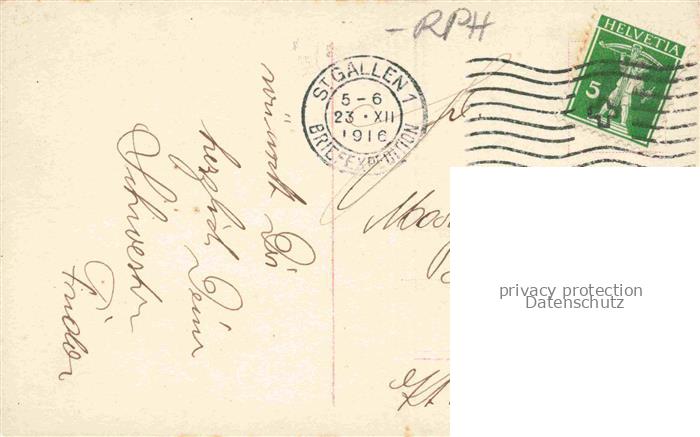 -RPH
HELVETIA
5
ST. GALLEN 1
5-6
23·XII
1916
BRIEFEXPEDITION
wünscht Dir
herzlich Deine
Schwester
privacy protection
Datenschutz